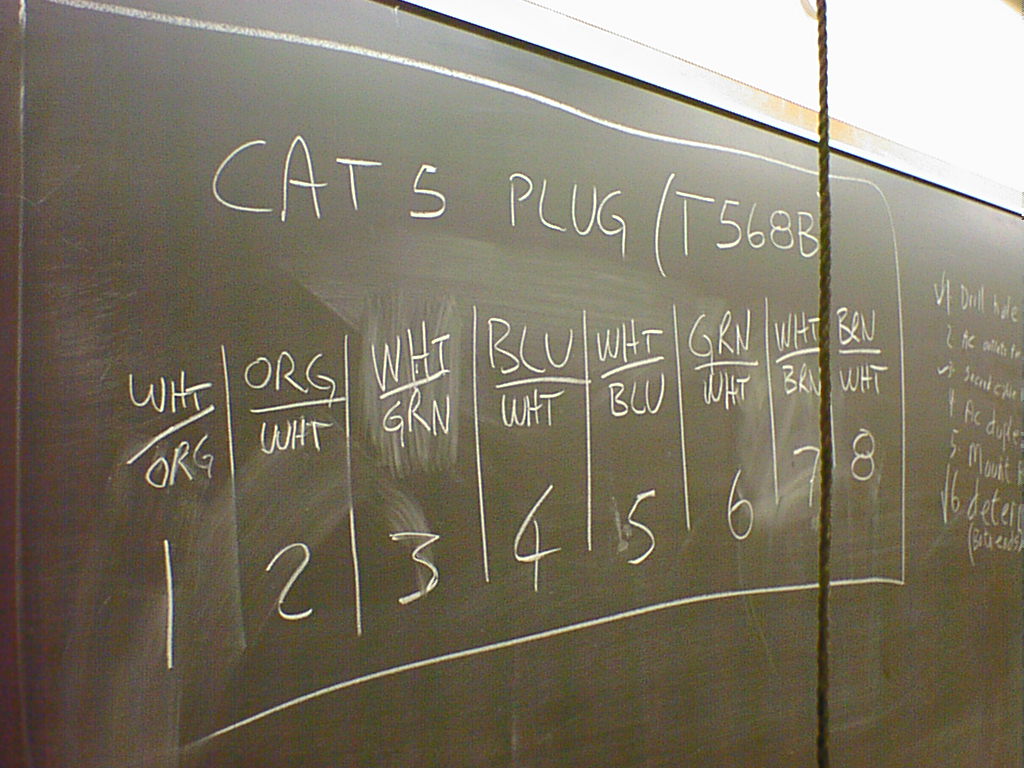 CAT 5 PLUG (T568B
WHT/ORG ORG/WHT WHT/GRN BLU/WHT WHT/BLU GRN/WHT WHT/BRN BRN/WHT
1 2 3 4 5 6 7 8
1 Drill hole
2 AC
4 AC
5 Mount
6
(Both ends)